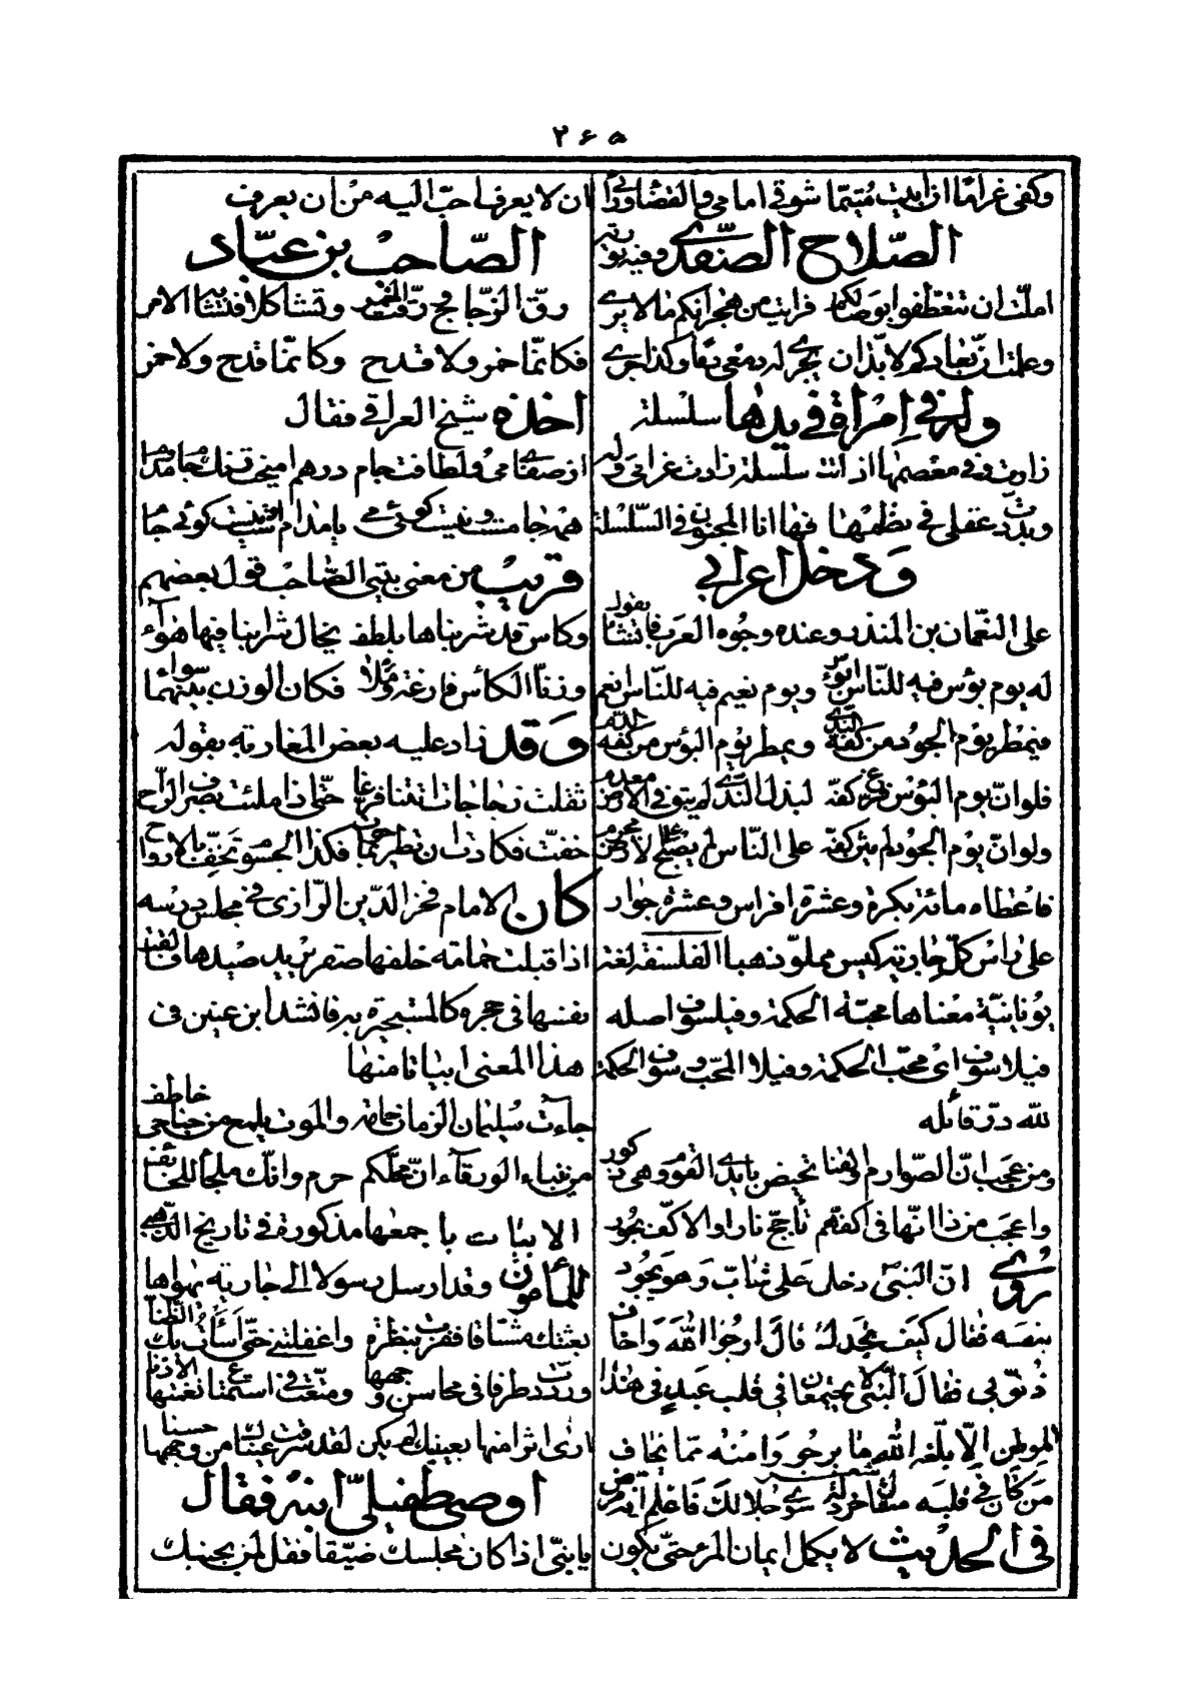 ٢٦٥
وكفى غراما ان ابيت متيما شوقى امامى والقضا ورائى
الصّلاح الصّفدى وفيه تورية
املت ان تتعطفوا بوصالكم فرايت من هجرانكم ما لا يرى
وعلمت انّ بعادكم لا بدّ ان يجرى له دمعى دما وكذا جرى
وله فى امراة فى يدها سلسلة
زارت وفى معصمها اذ اتت سلسلة زادت غرامى وله
وبددت عقلى فى نظمها فها انا المجنون فى السلسلة
ودخل اعرابى
على النعمان بن المنذر وعنده وجوه العرب فانشأ يقول
له يوم بؤس فيه للنّاس ابؤس ويوم نعيم فيه للنّاس انعم
فيمطر يوم الجود من كفّه الندى ويمطر يوم البؤس من كفّه الدم
فلو انّ يوم البؤس فرّغ كفّه لبذل الندى لم يبق فى الارض معدم
ولو انّ يوم الجود لم يثن كفّه على النّاس لم يصبح على الارض مجرم
فاعطاه مائة بكرة وعشرة افراس وعشرة جوار
على راس كلّ جارية كيس مملوّ ذهبا الفلسفة لغة
يونانيّة معناها محبّة الحكمة وفيلسوف اصله
فيلا سوف اى محبّ الحكمة وفيلا المحبّ وسوف الحكمة
للّه درّ قائله
ومن عجب انّ الصوارم والقنا تحيض بايدى القوم وهى ذكور
واعجب من ذا انّها فى اكفهم تأجّج نارا والاكفّ بحور
روى انّ النبىّ دخل على شابّ وهو يجود
بنفسه فقال كيف تجدك قال ارجوا اللّه واخاف
ذنوبى فقال النبىّ لا يجتمعان فى قلب عبد فى هذا
الموطن الّا بلّغه اللّه ما يرجو وآمنه ممّا يخاف
من كان فى قلبه مثقال خردلة سوى جلالك فاعلم انّه مرض
فى الحديث لا يكمل ايمان المرء حتّى يكون
ان لا يعرف احبّ اليه من ان يعرف
الصّاحب بن عبّاد
رقّ الزّجاج ورقّت الخمر وتشاكلا فتشابه الامر
فكانّما خمر ولا قدح وكانّما قدح ولا خمر
اخذه شيخ العراقى فقال
از صفاى مى ولطافت جام درهم اميخت رنك جام ومدام
همه جامست ونيست كوئى مى يا مدام است ونيست كوئى جام
قريب من معنى بيتى الصّاحب قول بعضهم
وكاس قد شربناها بلطف يخال شرابنا فيها هوآء
وزنّا الكأس فارغة وملأى فكان الوزن بينهما سواء
وقد زاد عليه بعض المغاربه بقوله
ثقلت زجاجات اتتنا فرغا حتّى اذا ملئت بصرف الرّاح
خفّت فكادت ان تطير بما حوت فكذا الجسوم تخفّ بالارواح
كان الامام فخر الدّين الرّازى فى مجلس درسه
اذ اقبلت حمامة خلفها صقر يريد صيدها فالقت
نفسها فى حجره كالمستجيرة به فانشد ابن عنين فى
هذا المعنى ابياتا منها
جاءت سليمان الزمان حمامة والموت يلمع من جناحى خاطف
من نبّاء الورقاء انّ محلّكم حرم وانّك ملجأ للخائف
الابيات باجمعها مذكورة فى تاريخ الذّهبى
للمأمون وقد ارسل رسولا الى جارية يهواها
بعثتك مشتاقا ففزت بنظرة واغفلتنى حتّى اسأت بك الظنّا
ورددت طرفا فى محاسن وجهها ومتّعت فى استمتاع نغمتها الاذنا
ارى اثرا منها بعينيك لم يكن لقد سرقت عيناك من وجهها حسنا
اوصى طفيلىّ ابنه فقال
يا بنىّ اذا كان مجلسك ضيّقا فقل لمن بجنبك